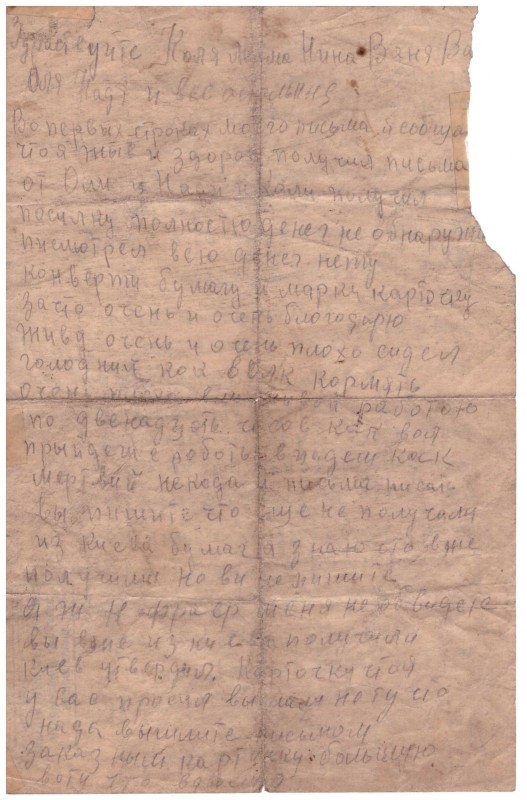 Здраствуйте Коля Мама Нина Ваня Ва
Оля Надя и все остальния
Во первых строках моего письма я собщаю
что я жыв и здоров получил письма
от Оли и Нади и Кали получил
посилку полностю денег не обнаружи
писмотрел всю денег нету
конверти бумагу и марки карточку
зачто очень и очень благодарю
живу очень и очень плохо сидел
голодния как волк кормять
очень плохо работаю
по двенадцать часов как вол
прыйдеш с роботы впадеш как
мертвий некода и письма писать
вы пишите что еще не получили
из Киева бумаг а я знаю что вже
получили но ви не пишите
я ж не фраер меня не
вы вже из получили
Киев утвердил. Карточку что я
у вас просил нету что
нада вышлите письмом
заказным карточку большую